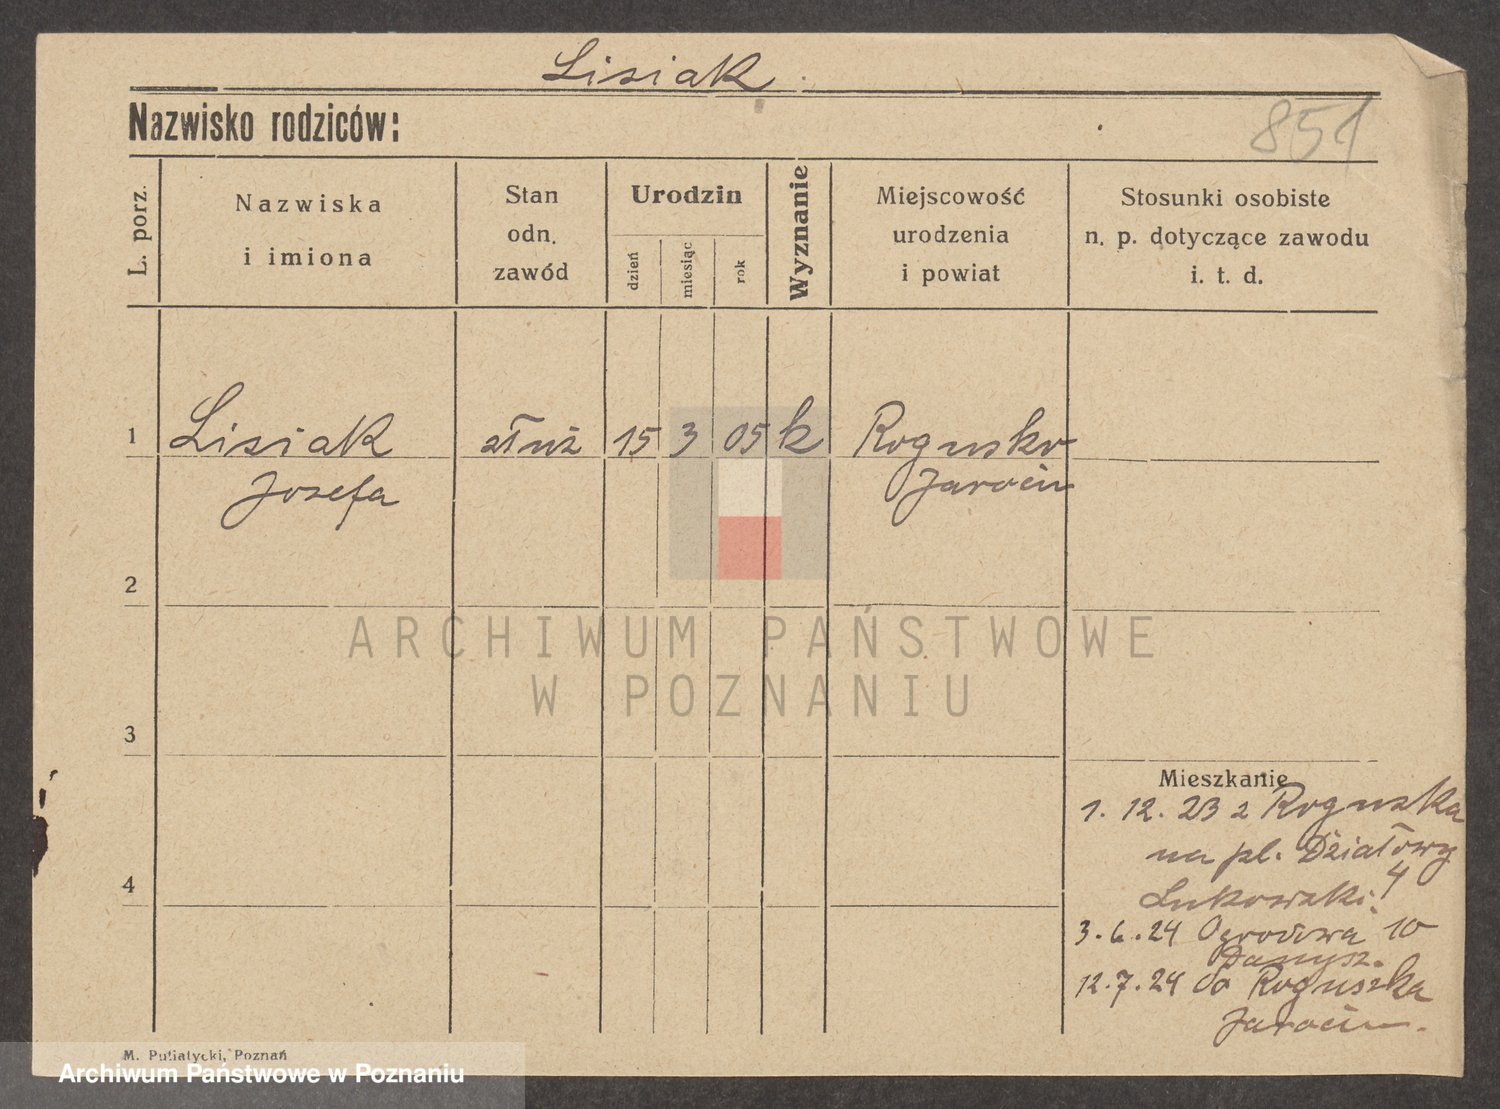 Lisiak
Nazwisko rodziców:
851
L. porz.
Nazwiska
i imiona
Stan
odn.
zawód
Urodzin
dzień
miesiąc
rok
Wyznanie
Miejscowość
urodzenia
i powiat
Stosunki osobiste
n. p. dotyczące zawodu
i. t. d.
1 Lisiak służ 15 3 05 k Rogusko
Josefa Jarocin
2
3
4
ARCHIWUM PAŃSTWOWE
W POZNANIU
Mieszkanie
1. 12. 23 z Roguska
na pl. Działowy
4
Lukowski.
3. 6. 24 Ogrodowa 10
Danysz.
12. 7. 24 do Roguszka
Jarocin.
M. Putiatycki, Poznań
Archiwum Państwowe w Poznaniu